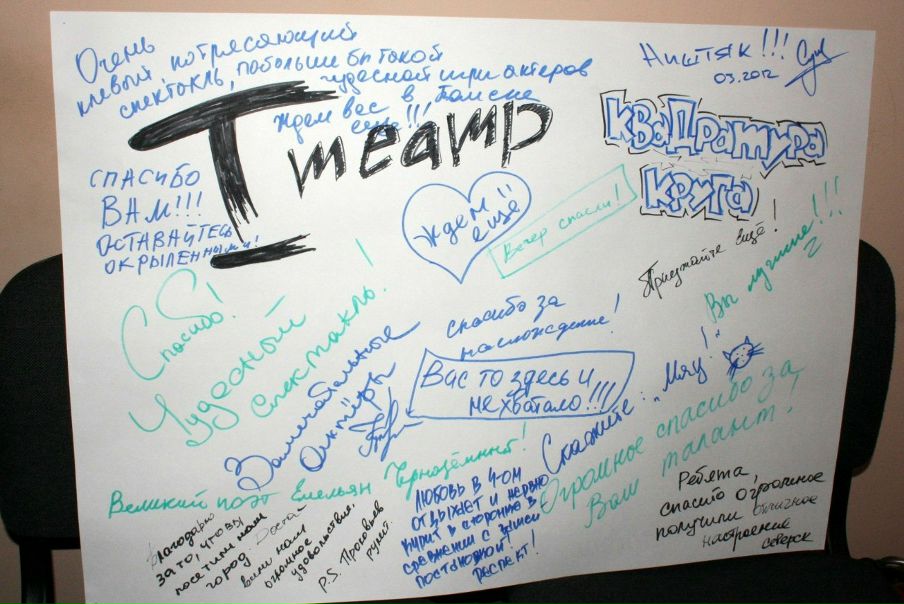 Очень
клевый, потрясающий
спектакль, побольше бы такой
чудесной игры актеров
Ждем вас в Томске
еще!!!
I театр
Ништяк!!!
03.2012
Квадратура
Круга
СПАСИБО
ВАМ!!!
ОСТАВАЙТЕСЬ
ОКРЫЛЕННЫМИ!
Ждем
еще!!
Вечер спасли!
Приезжайте ещё!
Вы лучшие!!!
Спасибо!
Чудесный
спектакль!
Замечательные
Актёры
спасибо за
наслаждение!
Вас то здесь и
не хватало!!!
Скажите: "Мяу!"
Огромное спасибо за
Ваш талант!
Великий поэт Емельян Чернозёмный!
Благодарю
за то, что вы
посетили наш
город. Доста-
вили нам
огромное
удовольствие.
P.S. Прокофьев
рулит.
ЛЮБОВЬ В 4-ОМ
ОТДЫХАЕТ И нервно
КУРИТ в сторонке в
сравнении с этой
постановкой!
РЕСПЕКТ!
Ребята
спасибо огромное
получили отличное
настроение
Северск